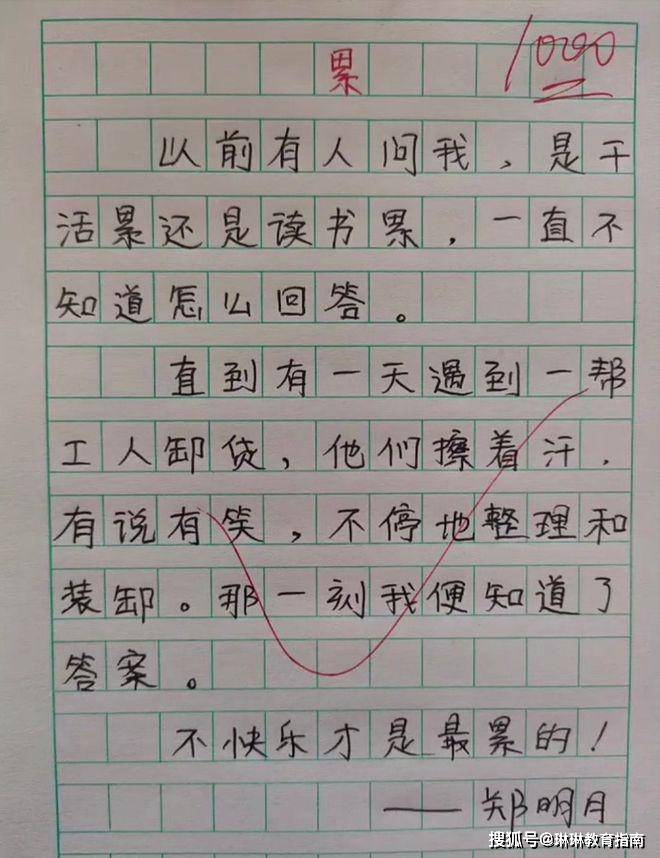 累
以前有人问我，是干
活累还是读书累，一直不
知道怎么回答。
直到有一天遇到一帮
工人卸货，他们擦着汗，
有说有笑，不停地整理和
装卸。那一刻我便知道了
答案。
不快乐才是最累的！
——郑明月
搜狐号@琳琳教育指南